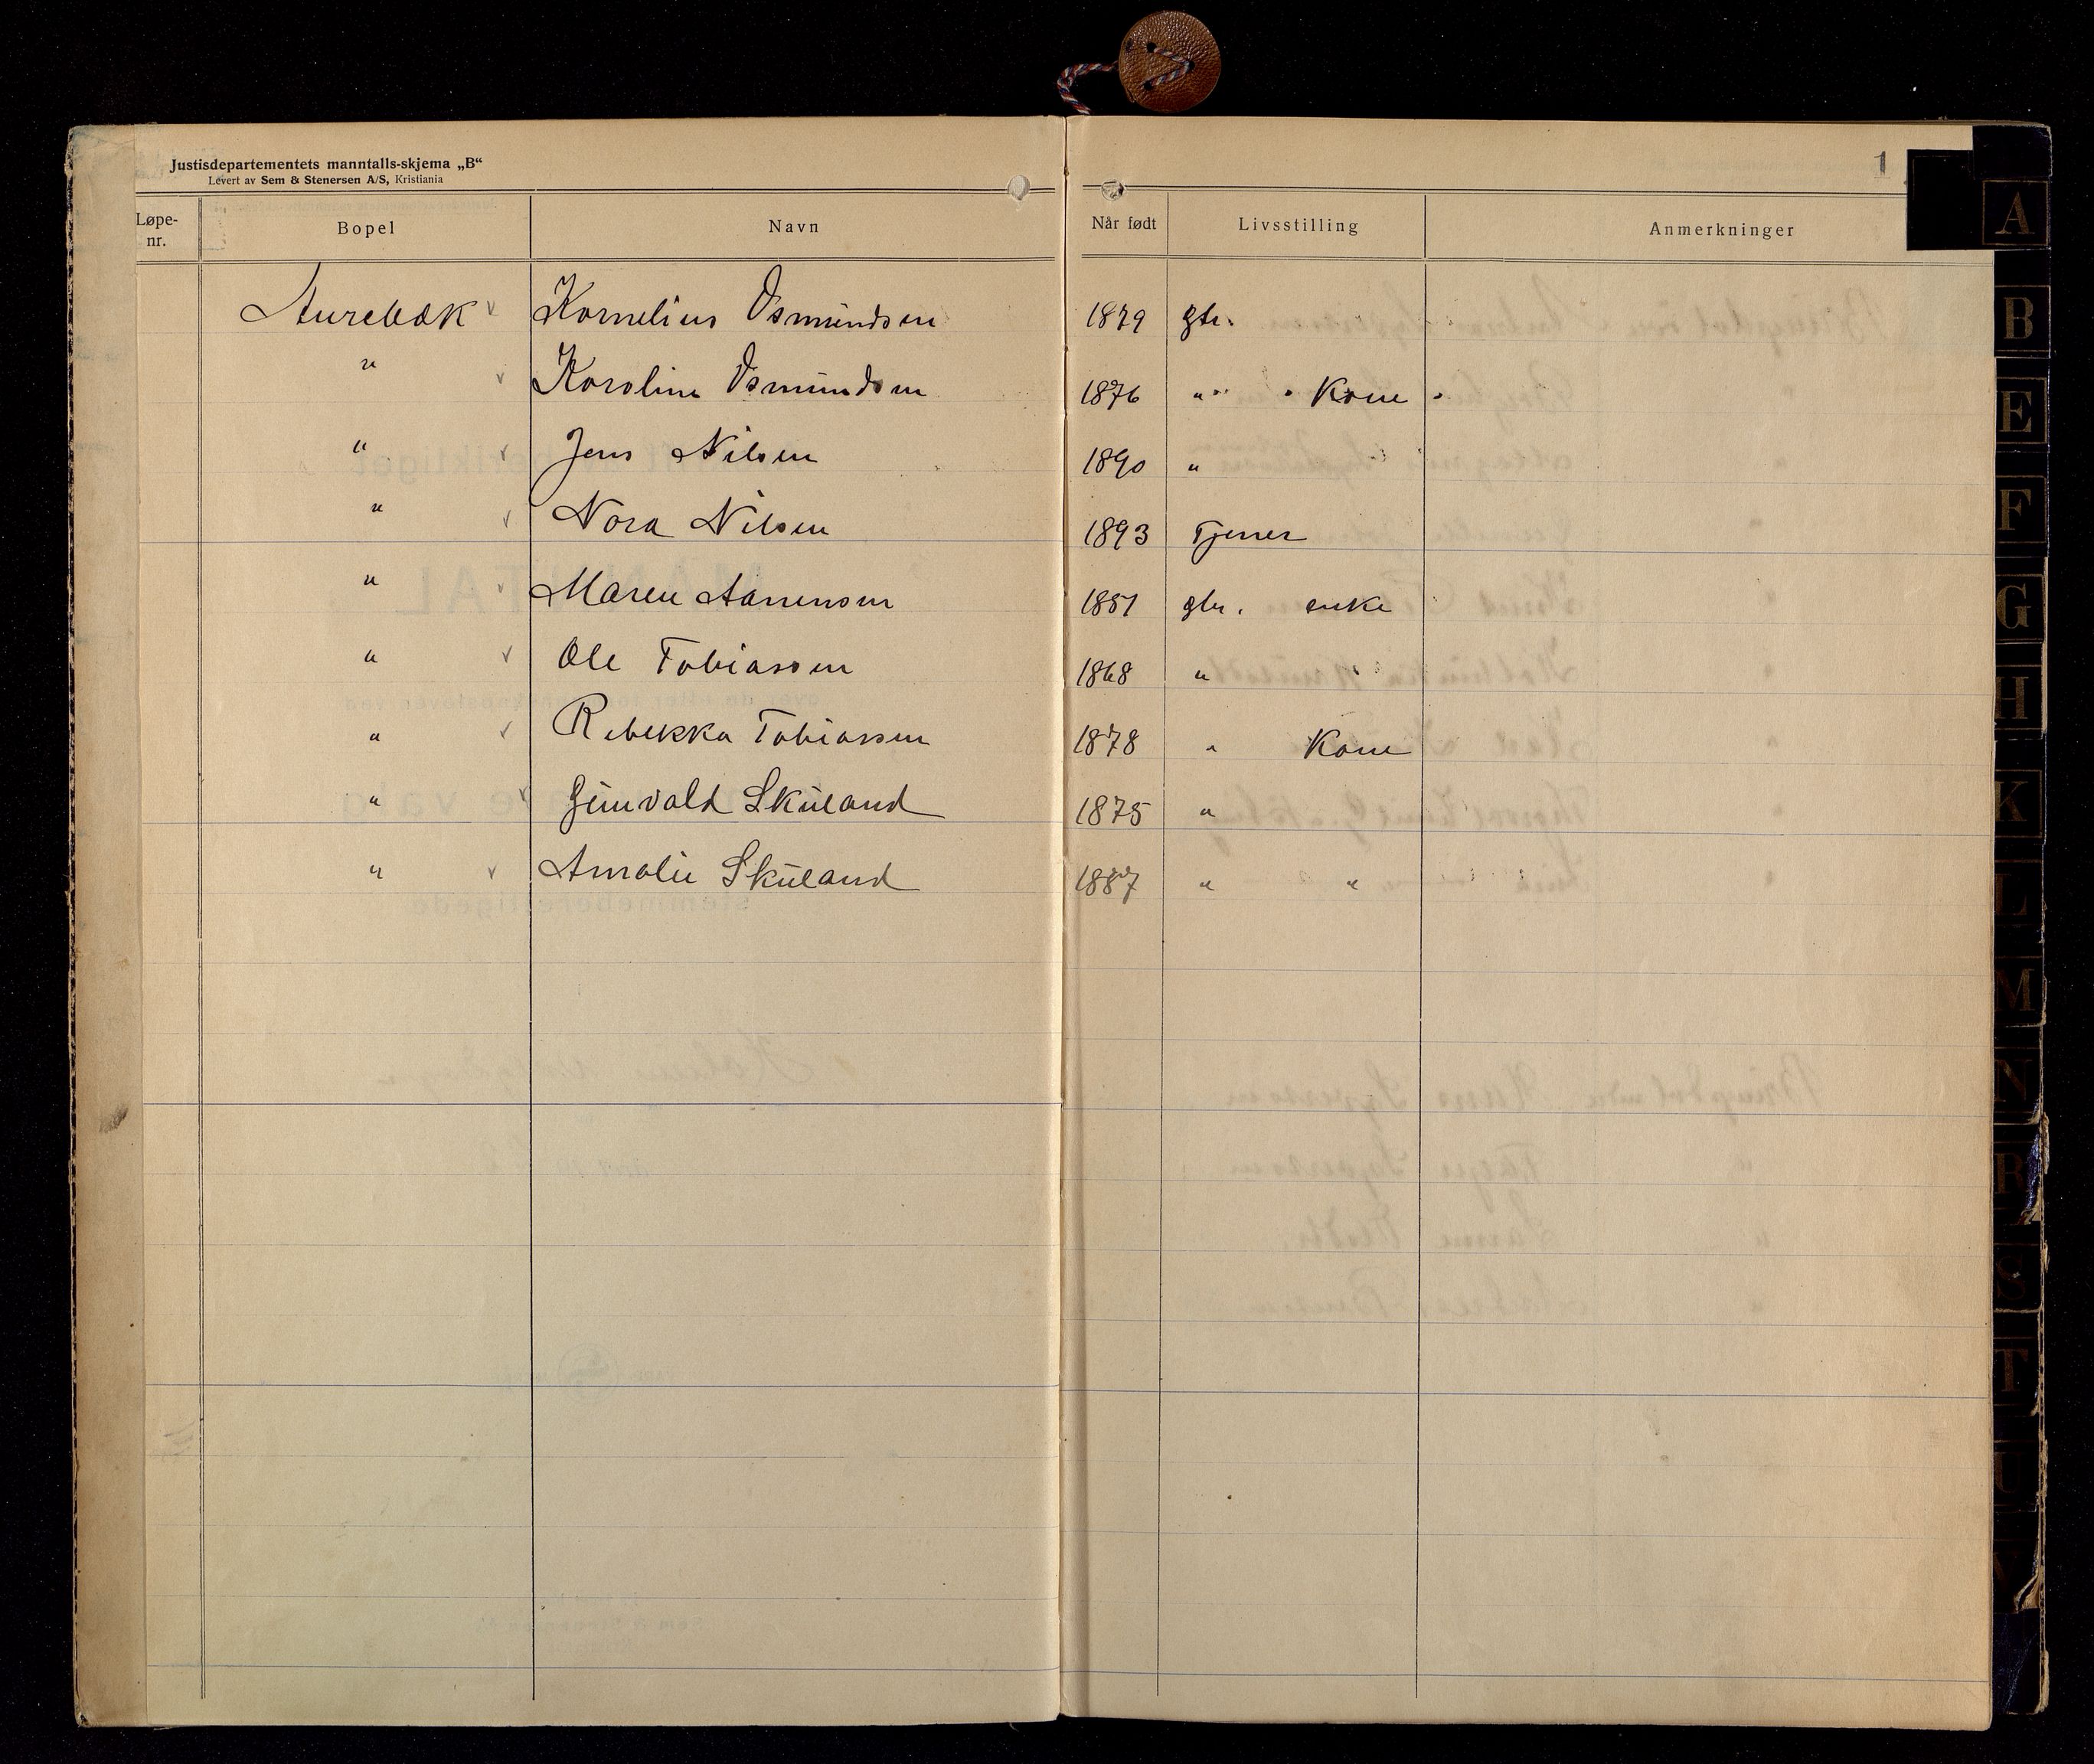 Justisdepartementets manntalls-skjema „B“
Levert av Sem & Stenersen A/S, Kristiania
1
Løpe-nr. Bopel Navn Når født Livsstilling Anmerkninger
Aurebæk ✓ Kornelius Osmundsen 1879 gbr.
" ✓ Karoline Osmundsen 1876 " Kone
" ✓ Jens Nilsen 1890 "
" ✓ Nora Nilsen 1893 Tjener
" ✓ Maren Aanensen 1851 gbr. enke
" ✓ Ole Tobiassen 1868 "
" ✓ Rebekka Tobiassen 1878 " Kone
" ✓ Gunvald Skuland 1875 "
" ✓ Amalie Skuland 1887 " "
A
B
E
F
G
H
K
L
M
N
R
S
T
U
V